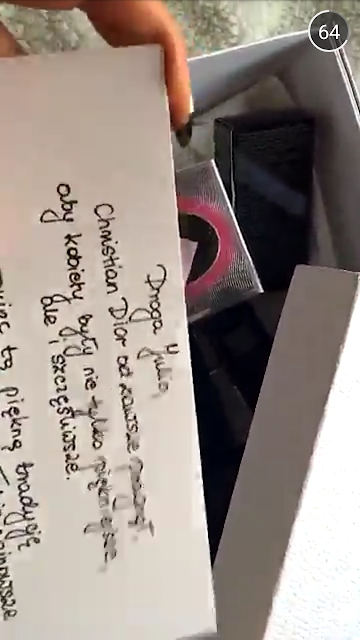 64
Droga Julio,
Christian Dior od zawsze pragnął,
aby kobiety były nie tylko piękniejsze,
ale i szczęśliwsze.
tę piękną tradycję